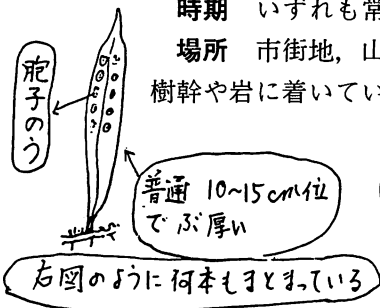 時期 いずれも常
場所 市街地，山
樹幹や岩に着いてい
胞子のう
普通 10~15cm位
でぶ厚い
右図のように何本もまとまっている